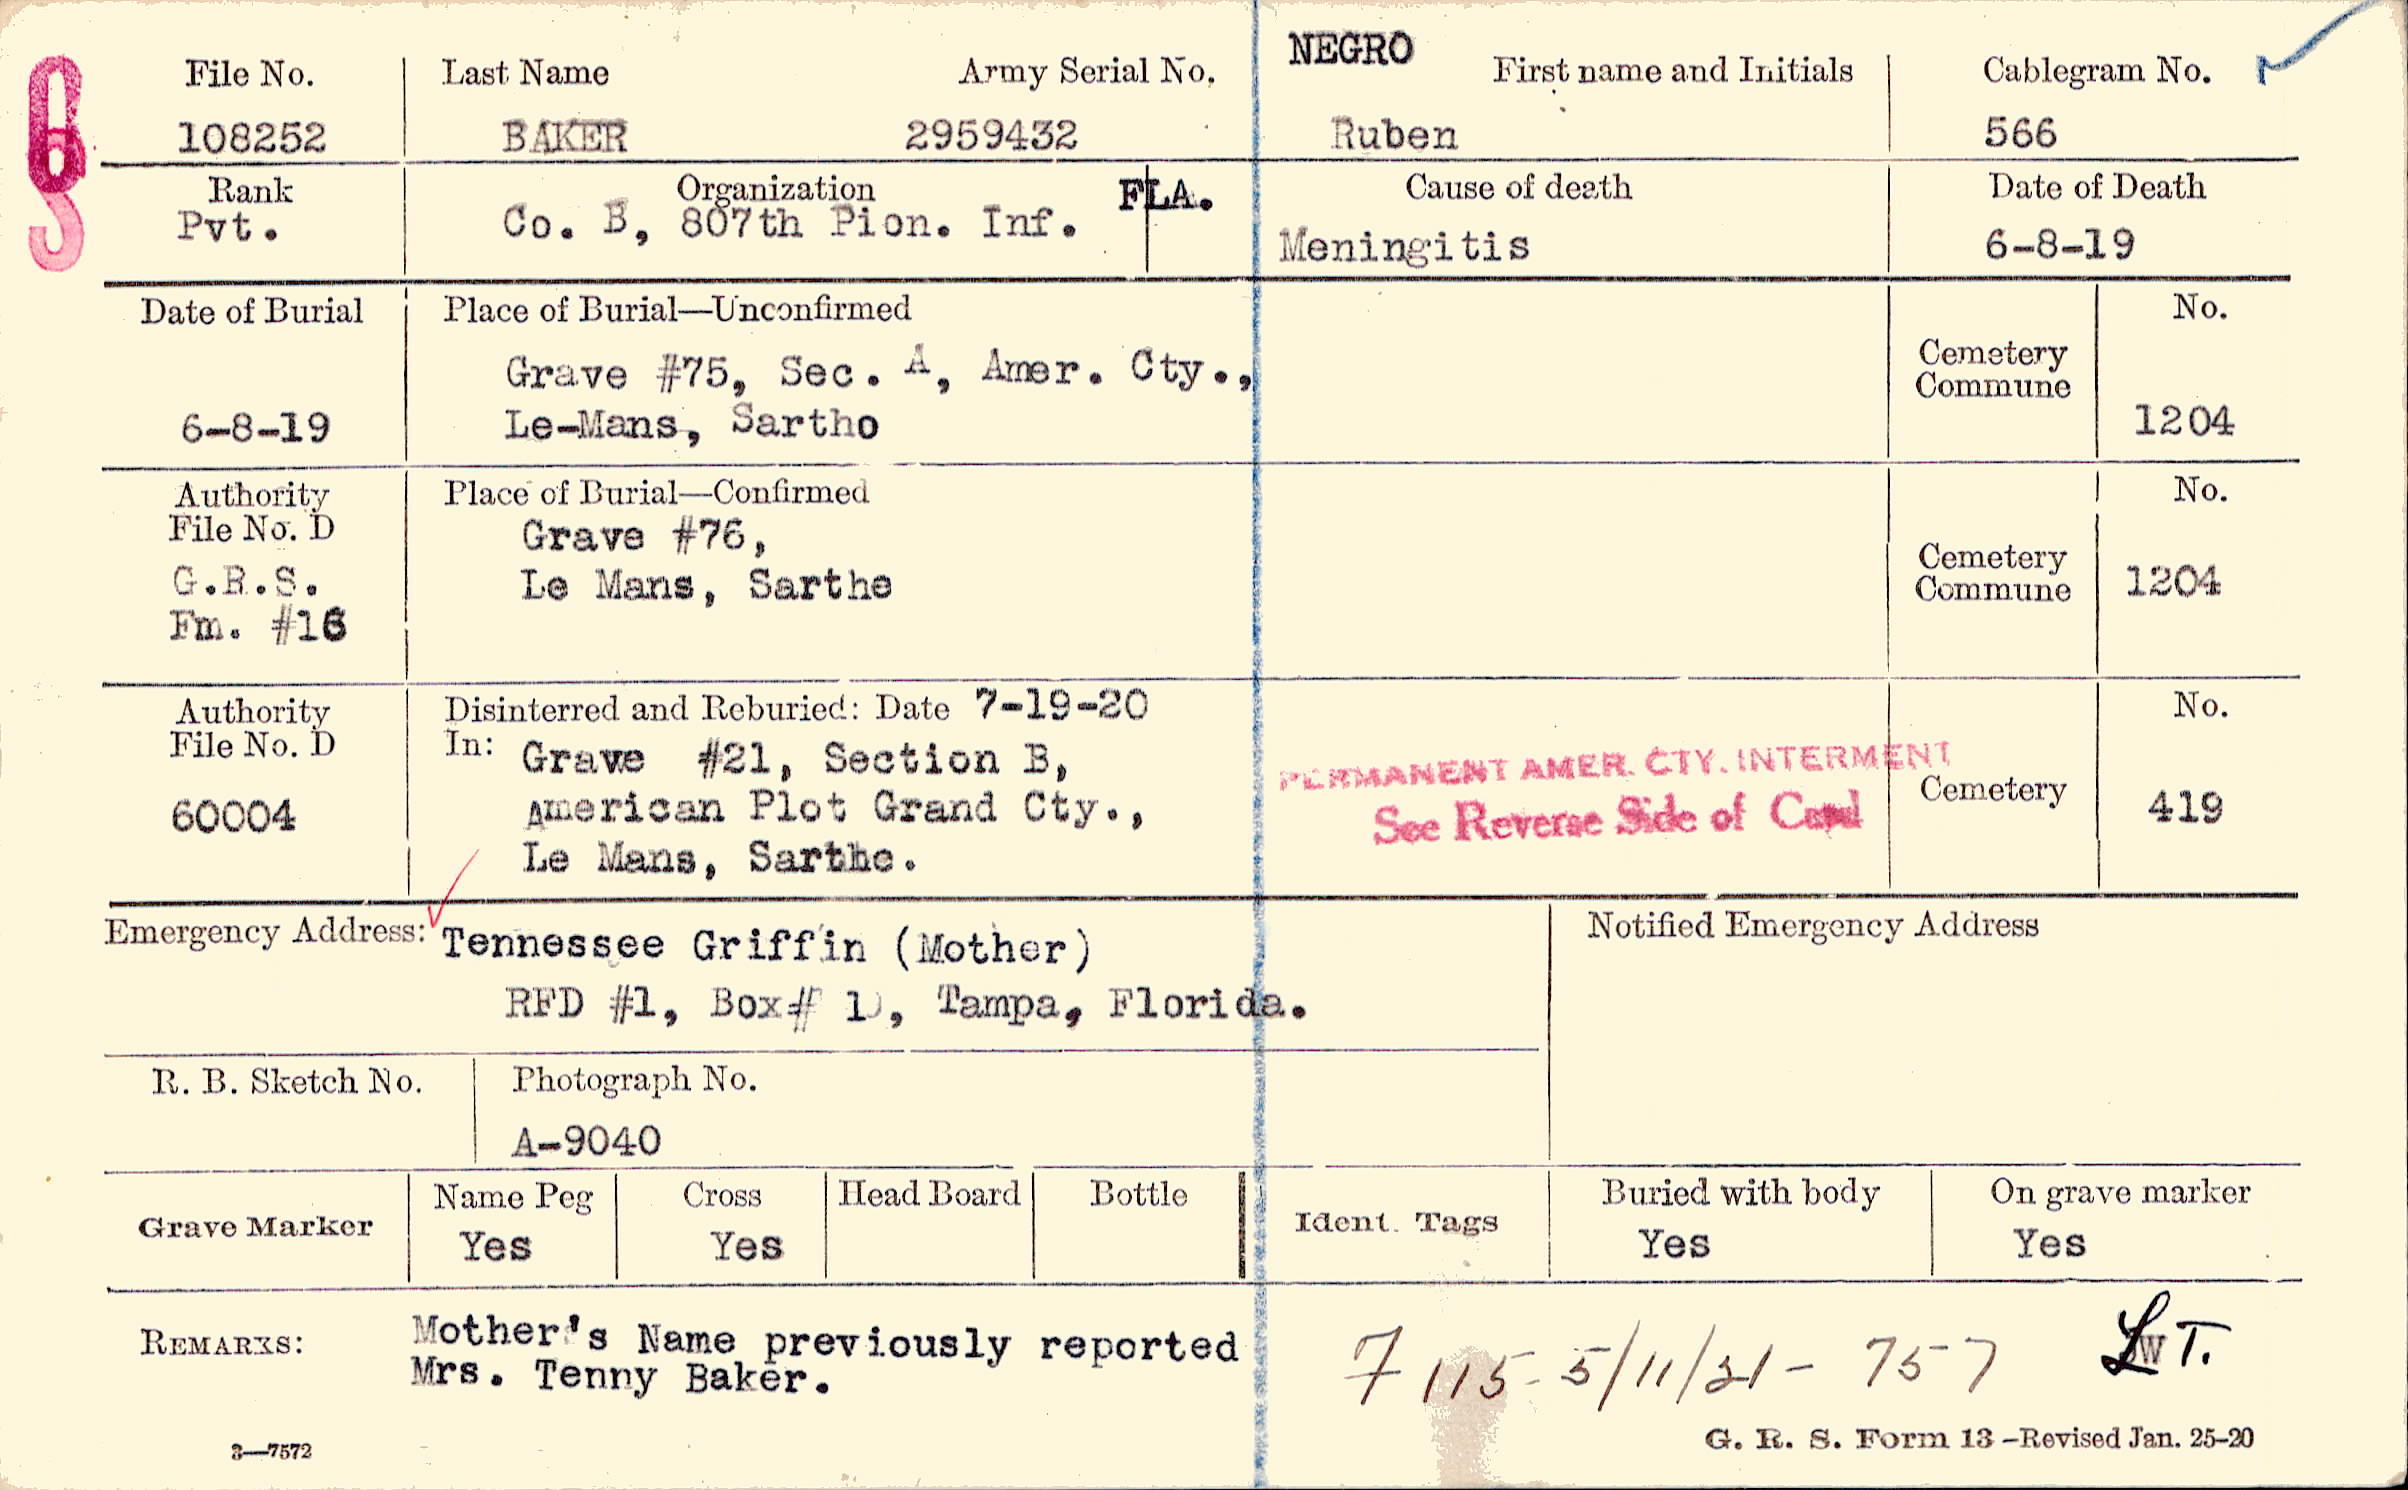 NEGRO
File No. Last Name Army Serial No. First name and Initials Cablegram No.
108252 BAKER 2959432 Ruben 566
Rank Organization FLA. Cause of death Date of Death
Pvt. Co. B, 807th Pion. Inf. Meningitis 6-8-19
Date of Burial Place of Burial—Unconfirmed No.
Grave #75, Sec. A, Amer. Cty., Cemetery
Commune
6-8-19 Le-Mans, Sartho 1204
Authority Place of Burial—Confirmed No.
File No. D Grave #76, Cemetery
G.R.S. Le Mans, Sarthe Commune 1204
Fm. #16
Authority Disinterred and Reburied: Date 7-19-20 No.
File No. D In: Grave #21, Section B, PERMANENT AMER. CTY. INTERMENT
60004 American Plot Grand Cty., See Reverse Side of Card Cemetery 419
Le Mans, Sarthe.
Emergency Address: Tennessee Griffin (Mother) Notified Emergency Address
RFD #1, Box# , Tampa, Florida.
R. B. Sketch No. Photograph No.
A-9040
Grave Marker Name Peg Cross Head Board Bottle Ident. Tags Buried with body On grave marker
Yes Yes Yes Yes
REMARKS: Mother's Name previously reported
Mrs. Tenny Baker.
7 115- 5/11/21- 757 T.
3—7572 G. R. S. Form 13-Revised Jan. 25-20